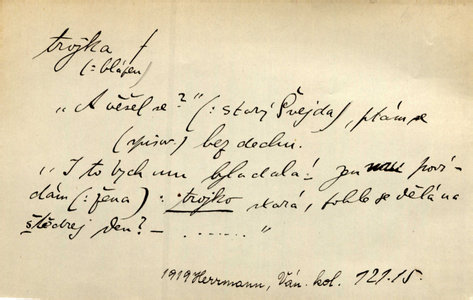 trojka f
(: blázen)
„A věšel se?" (: starý Švejda), ptám se
(spisov.) bez dechu.
„I to bych mu byla dala! jen poví-
dám (: žena) : trojko stará, tohle se dělá na
štědrej den? – ......."
1919 Herrmann, Ván. kol. 121.15.